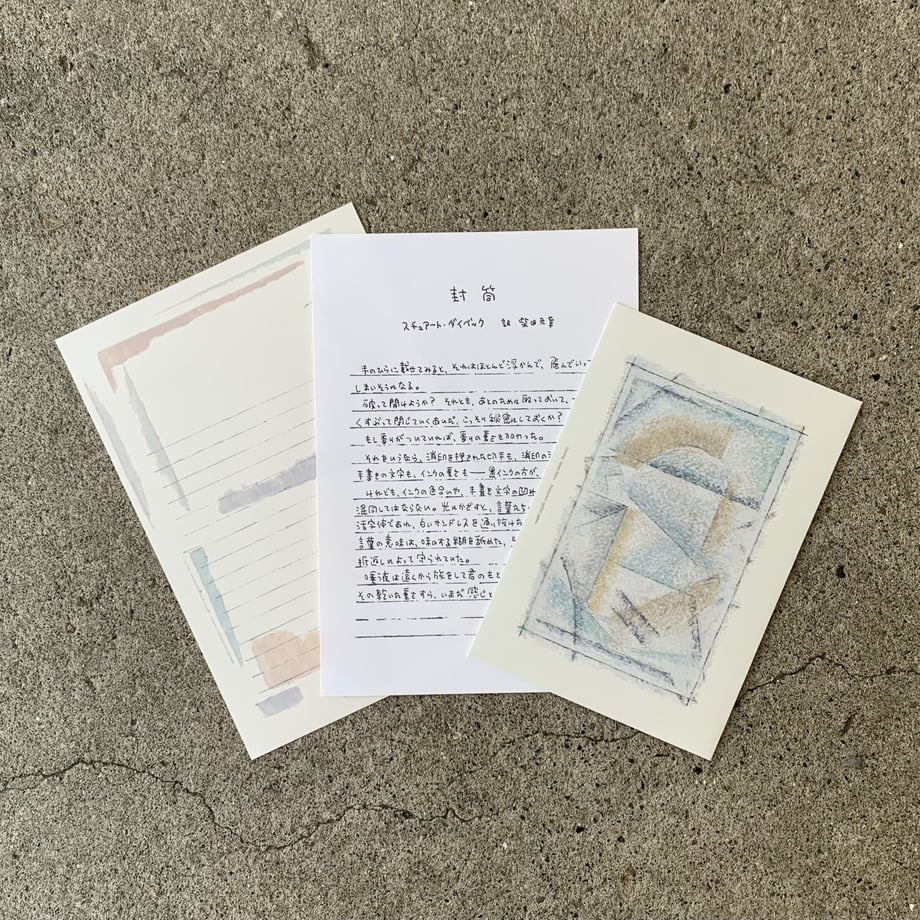 封筒
スチュアート・ダイベック 訳 柴田元幸
手のひらに載せてみると、それはほとんど浮かんで、飛んでいって
しまいそうになる。
破って開けようか？ それとも、あとのために取っておいて、
くすぶって閉じていくあいだ、こっそり秘密にしておくか？
もし香りがついていれば、香りの重さも加わった。
それをいうなら、消印を押された切手も、消印の
手書きの文字も、インクの重さも——黒インクの方が、
けれども、インクの色合いや、手書き文字の凹
混同してはならない。光にかざすと、言葉たち
活字体であれ、白いサンドレスを通り抜けた
言葉の意味は、味のする糊を舐めた、と
折返しによって守られていた。
唾液は遠くから旅をして君のもと
その乾いた重さすら、いまだ感じと